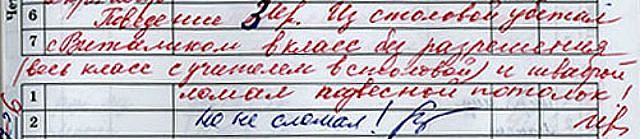 6 Поведение 3 Ив. Из столовой убежал
7 с Виталиком в класс без разрешения
(весь класс с учителем в столовой) и шваброй
1 ломал подвесной потолок!
2 но не сломал!